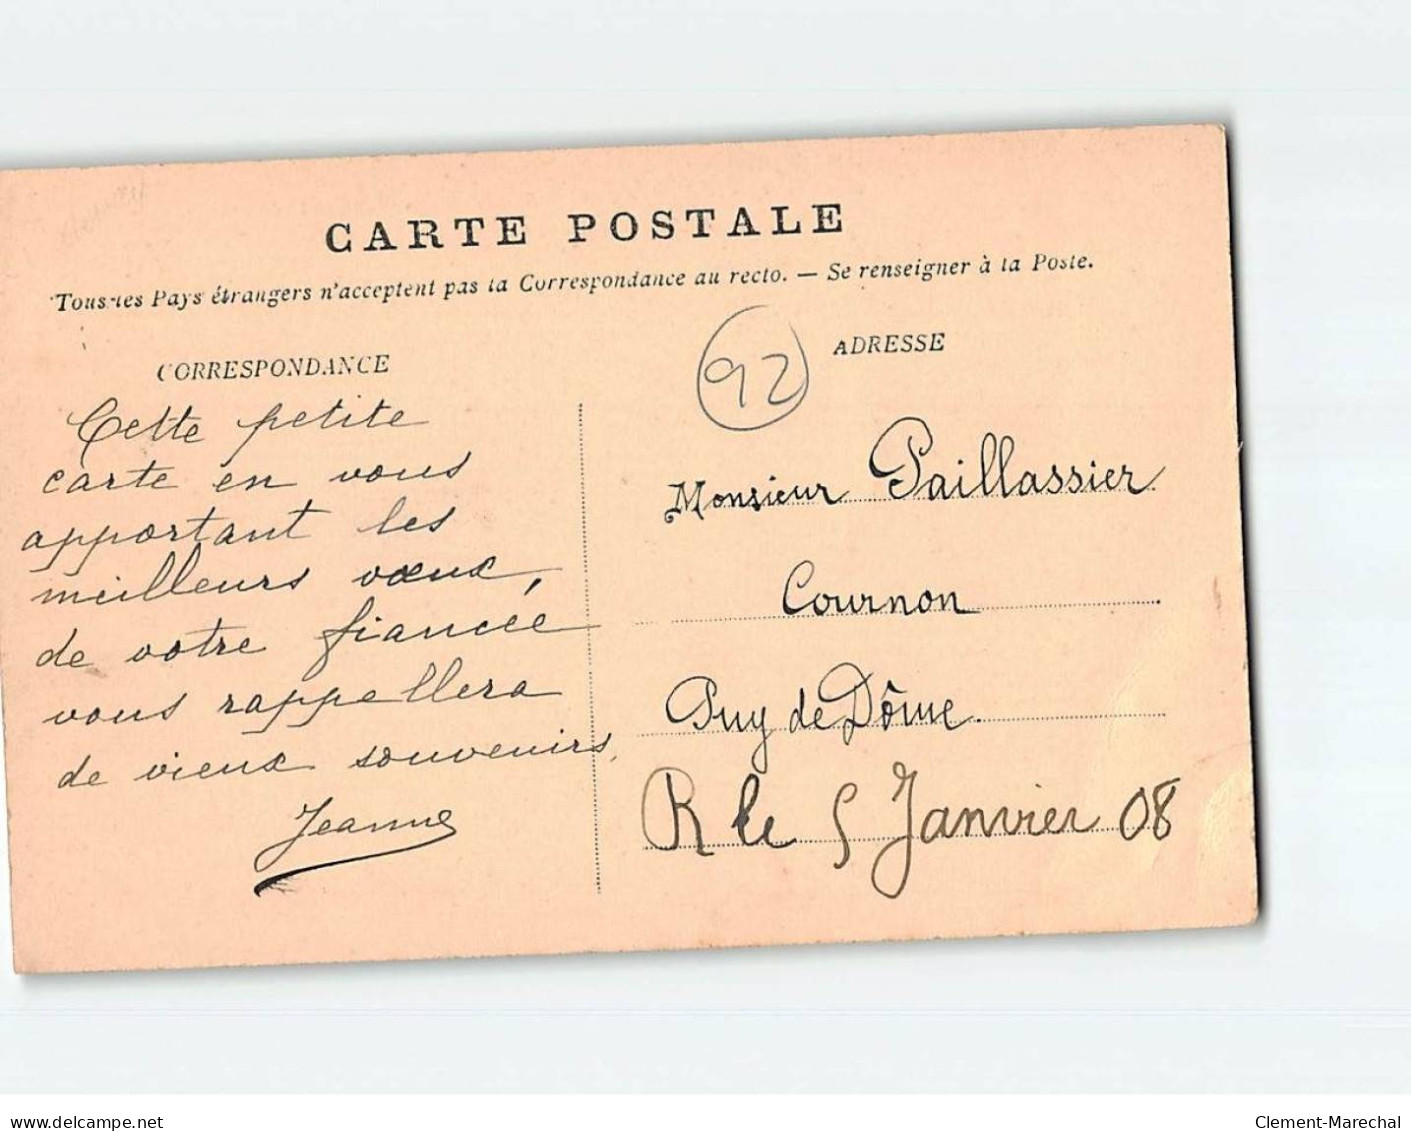 CARTE POSTALE
Tous les Pays étrangers n'acceptent pas la Correspondance au recto. — Se renseigner à la Poste.
CORRESPONDANCE
Cette petite
carte en vous
apportant les
meilleurs vœux,
de votre fiancée
vous rappellera
de vieux souvenirs.
Jeanne
92
ADRESSE
Monsieur Paillassier
Cournon
Puy de Dôme.
R le 5 Janvier 08
www.delcampe.net
Clement-Marechal